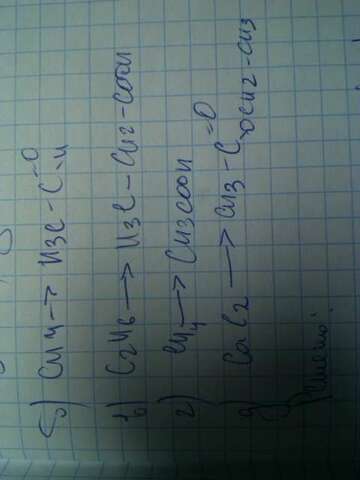 б) CH4 → H3C - C =O - H
в) C2H6 → H3C - CH2 - COOH
г) CH4 → CH3COOH
д) CaC2 → CH3 - C =O OCH2 - CH3
Решение: